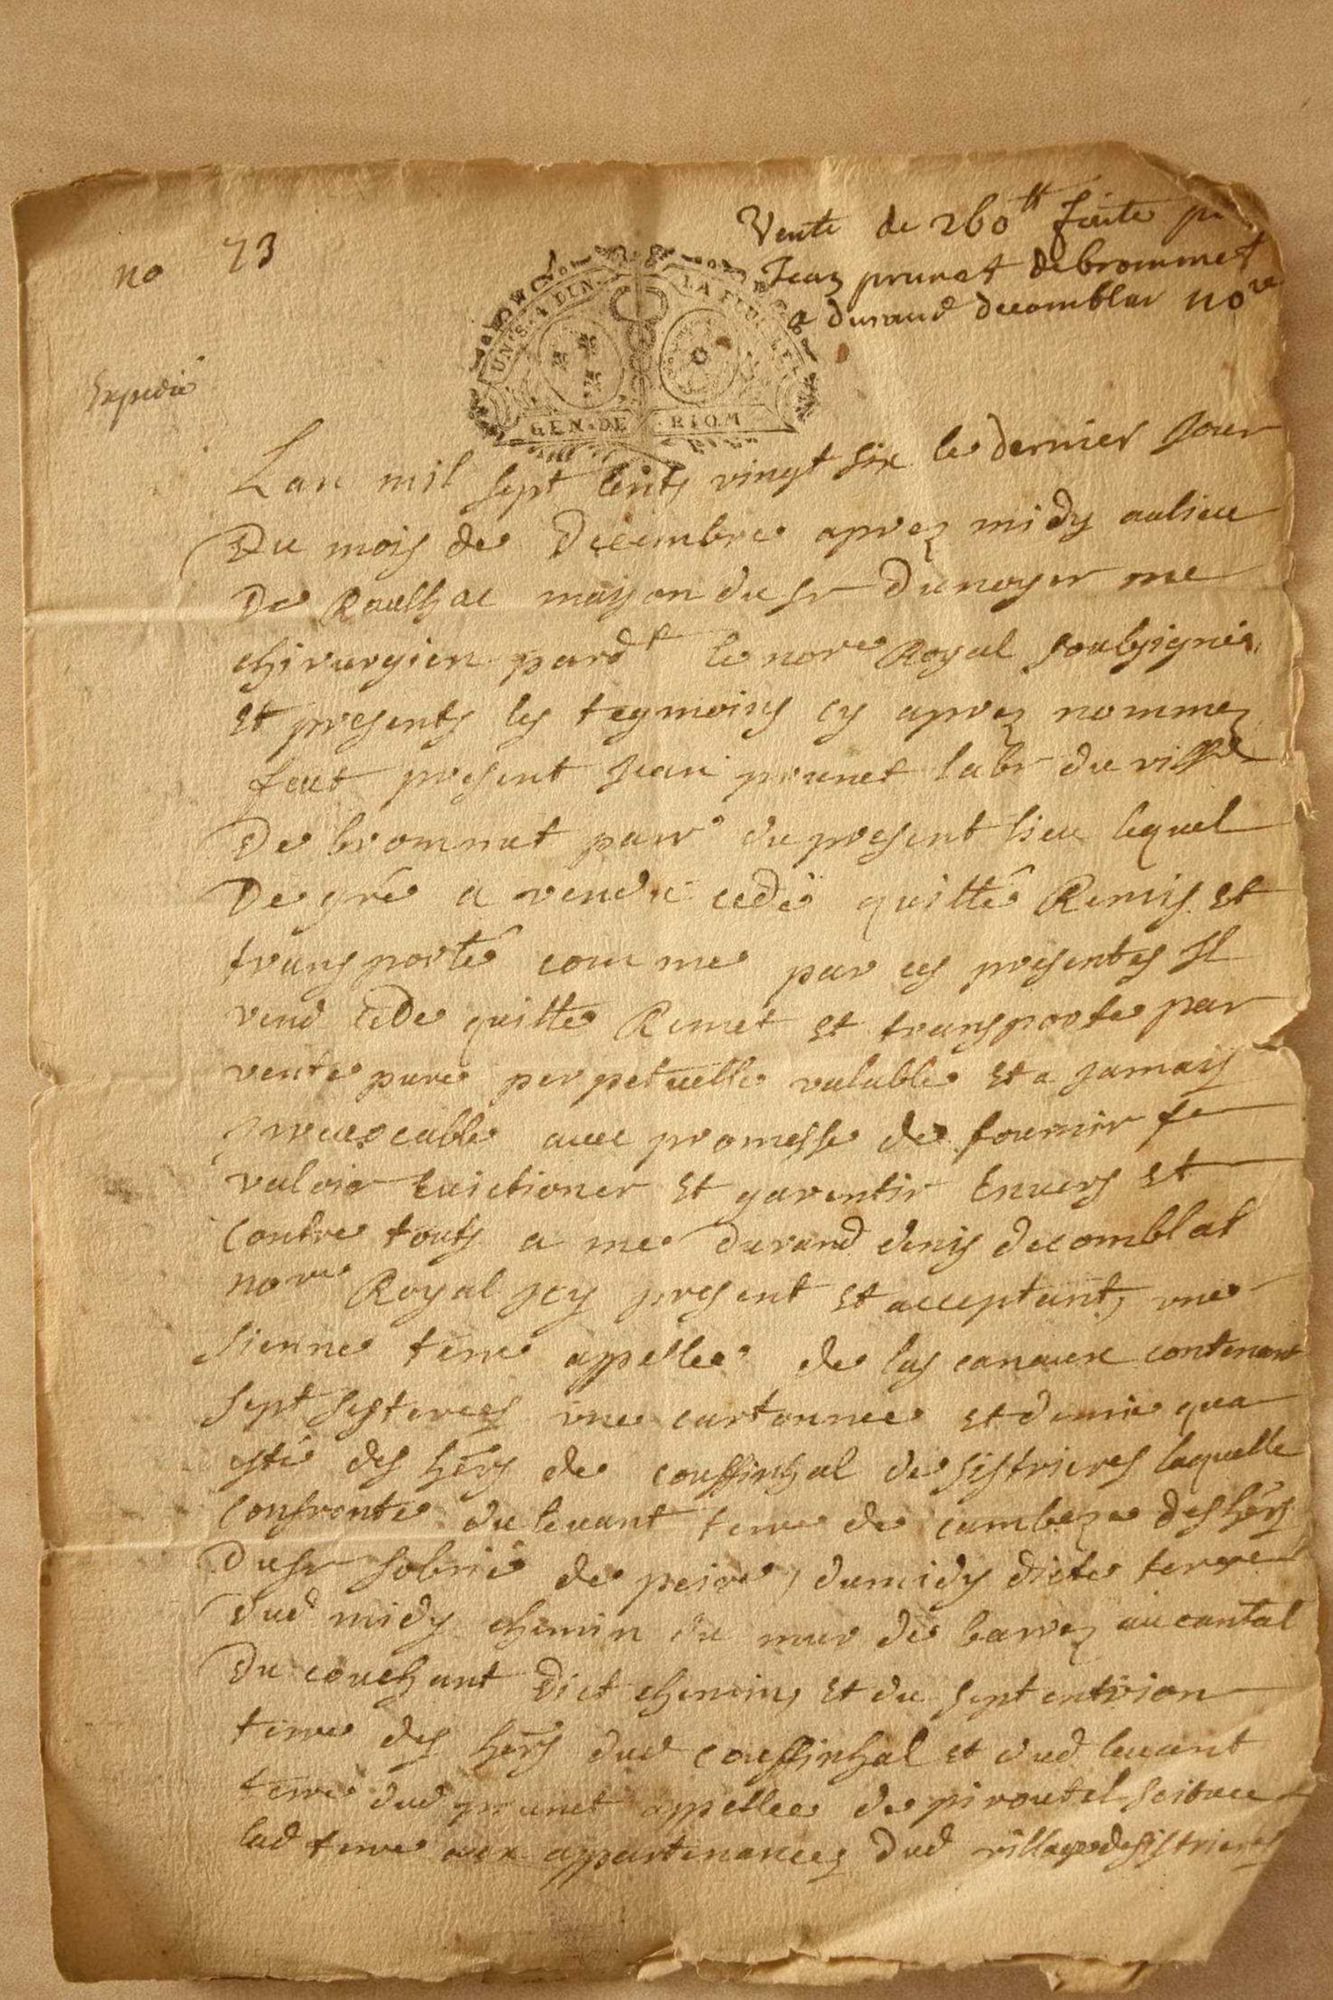 no 73
Vente de 260tt faite p
Jean prunet de brommet
a durand decomblat nore
Expedié
GEN. DE RIOM
Lan mil sept cents vingt six le dernier Jour
Du mois de Decembre aprez midy aulieu
De Raulhac maison du sr Dunoyer me
chirurgien pard.t le nore Royal soubsigné
Et presents les tesmoins cy aprez nommez
feut present Jean prunet labr du villge
De brommet parr.e du present lieu lequel
De gré a vendu cedé quitté Remis et
transporté comme par ces presentes Il
vend cede quitte Remet et transporte par
vente pure perpetuelle valable et a jamais
jrreuocable auec promesse de fournir fe
valoir Euictioner et garentir Enuers et
Contre touts a me durand denis decomblat
nore Royal jcy present et acceptant, une
sienne terre appellee de las canaux contenant
sept sesterees une cartonnee et demie qua
esté des hers de couffinhal de sistrieres laquelle
confronte du leuant terre de cambeze des hers
dusr sobrié de peire, dumidy dicte terre
dud midy chemin du mur de barrez au cantal
Du couchant dict chemin, et du septentrion
terre des hers dud couffinhal et dud leuant
terre dud prunet appellee de piroutel scituee
lad terre aux appartenances dud village de sistrieres